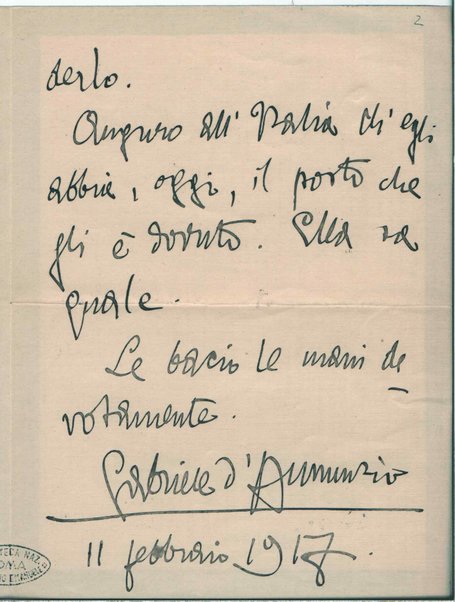 2
derlo.
Auguro all'Italia ch'egli
abbia, oggi, il posto che
gli è dovuto. Ella sa
quale.
Le bacio le mani de
votamente.
Gabriele d'Annunzio
11 febbraio 1917.
TECA NAZ.
OMA
RIO EMANUELE